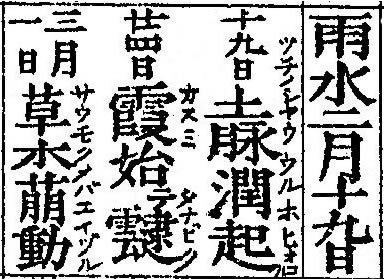 雨水二月十九日
ツチノシヤウウルホヒオコル
十九日土脉潤起
カスミ タナビク
廿四日霞始テ靆
サウモクメバエイヅル
三月一日草木萠動